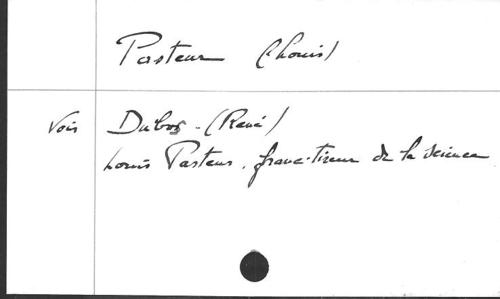 Pasteur (Louis)
Voir Dubos - (René)
Louis Pasteur, franc-tireur de la science